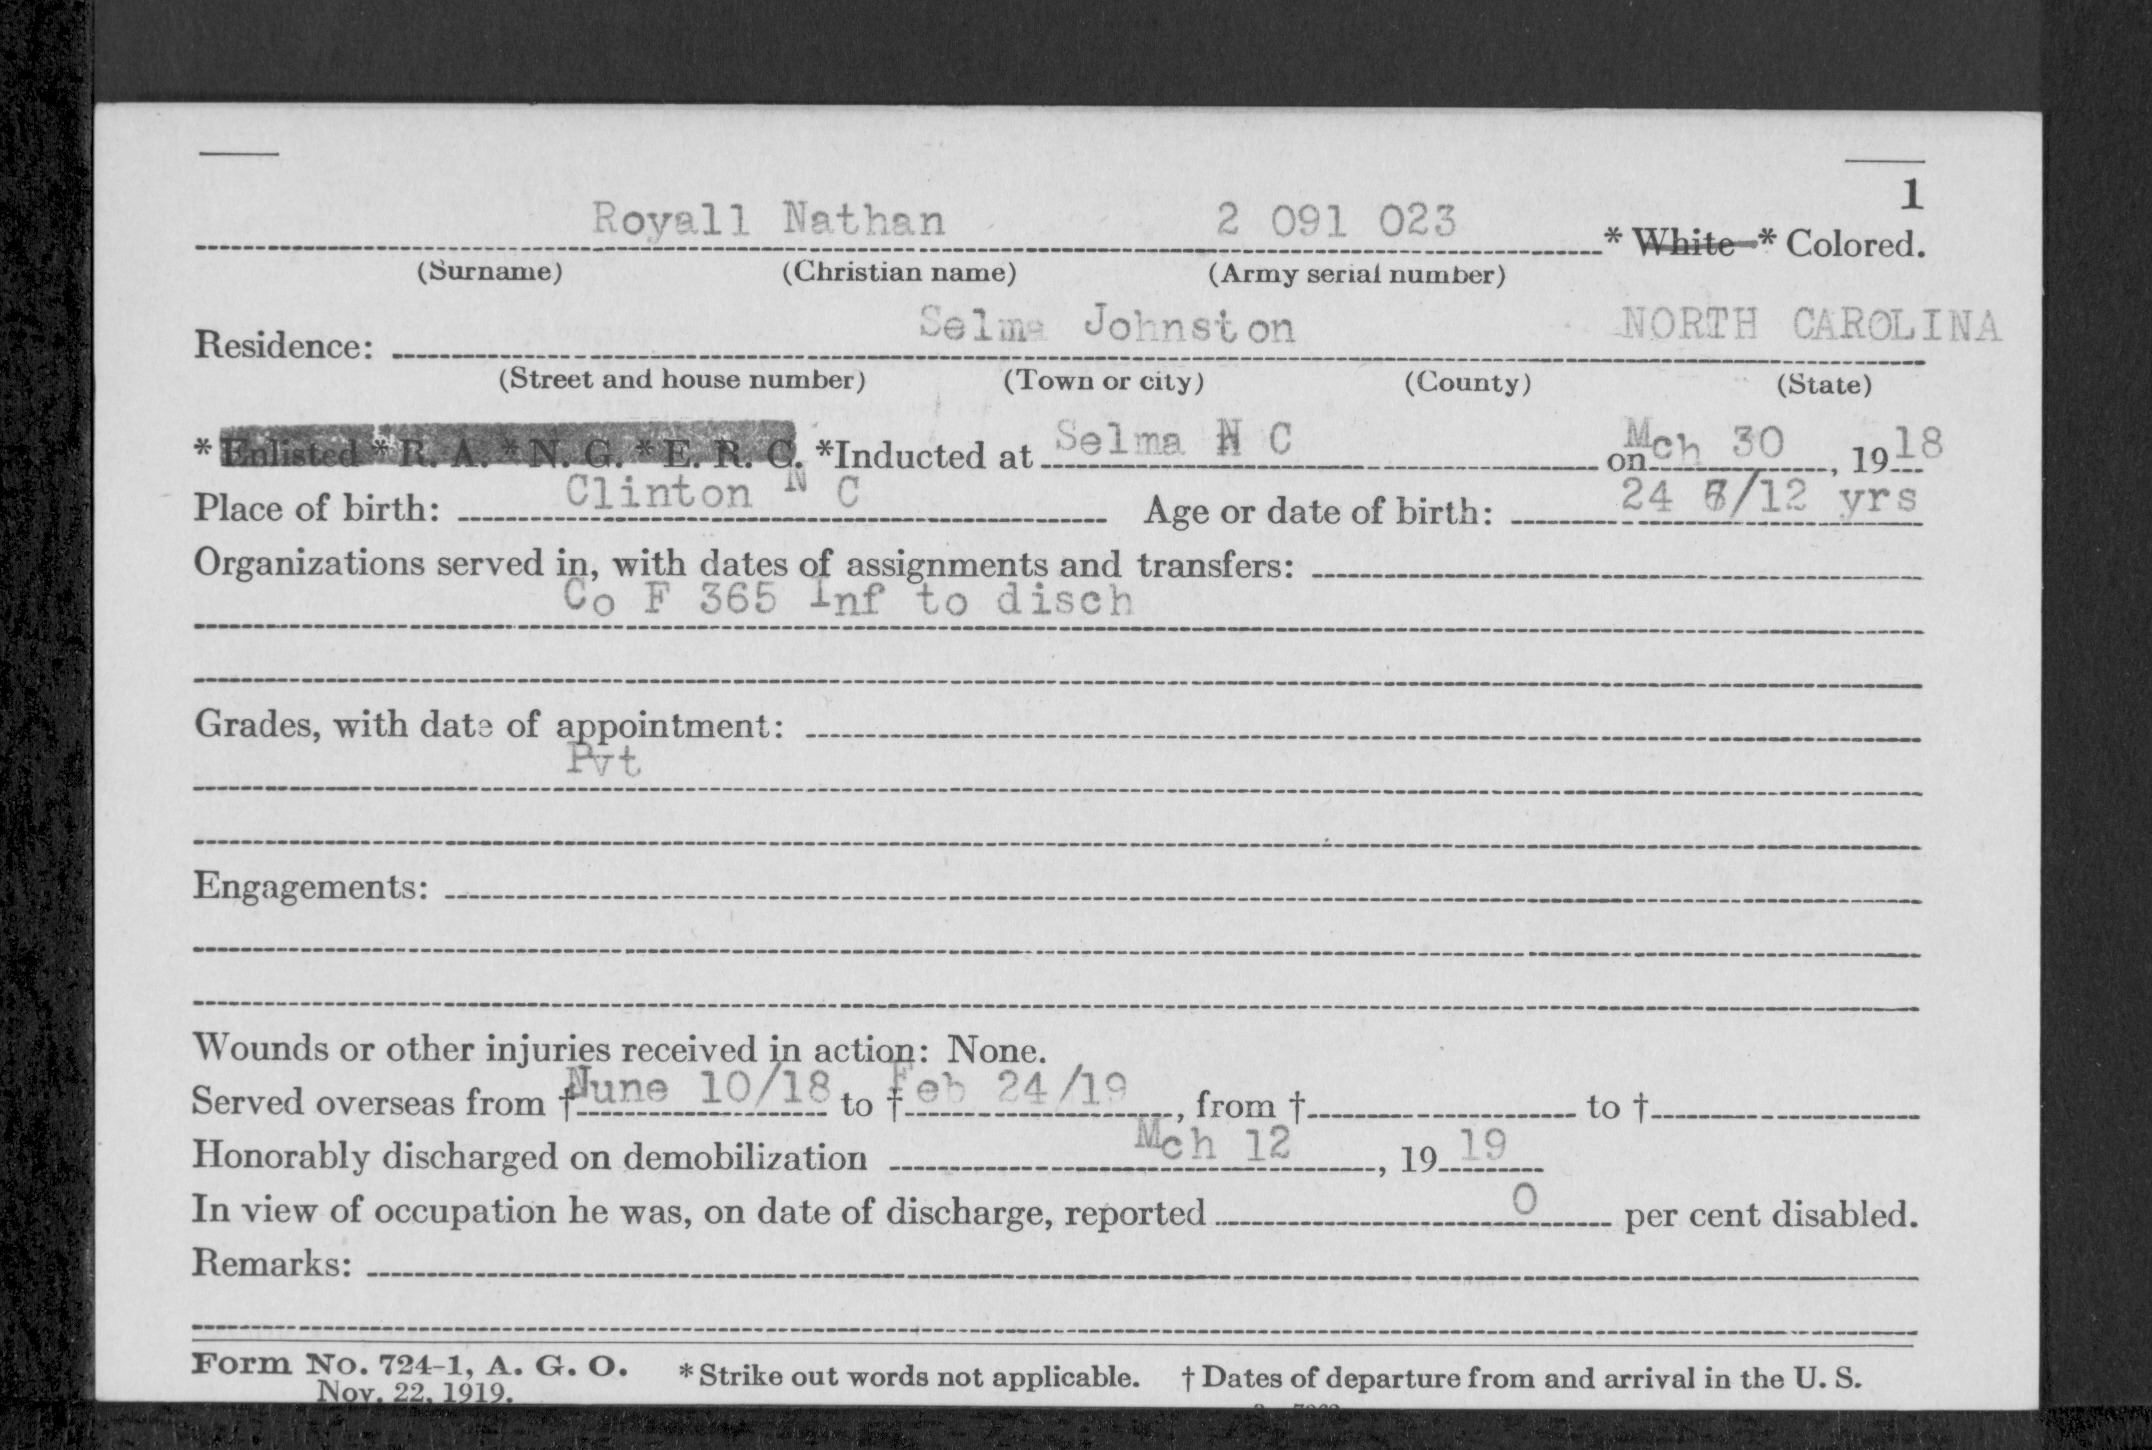 1
Royall Nathan 2 091 023 * White * Colored.
(Surname) (Christian name) (Army serial number)
Residence: Selma Johnston NORTH CAROLINA
(Street and house number) (Town or city) (County) (State)
* Enlisted * R. A. * N. G. * E. R. C. *Inducted at Selma N C on Mch 30, 1918
Place of birth: Clinton N C Age or date of birth: 24 /12 yrs
Organizations served in, with dates of assignments and transfers:
Co F 365 Inf to disch
Grades, with date of appointment:
Pvt
Engagements:
Wounds or other injuries received in action: None.
Served overseas from † June 10/18 to † Feb 24/19, from † to †
Honorably discharged on demobilization Mch 12, 19 19
In view of occupation he was, on date of discharge, reported 0 per cent disabled.
Remarks:
Form No. 724-1, A. G. O. * Strike out words not applicable. † Dates of departure from and arrival in the U. S.
Nov. 22, 1919.